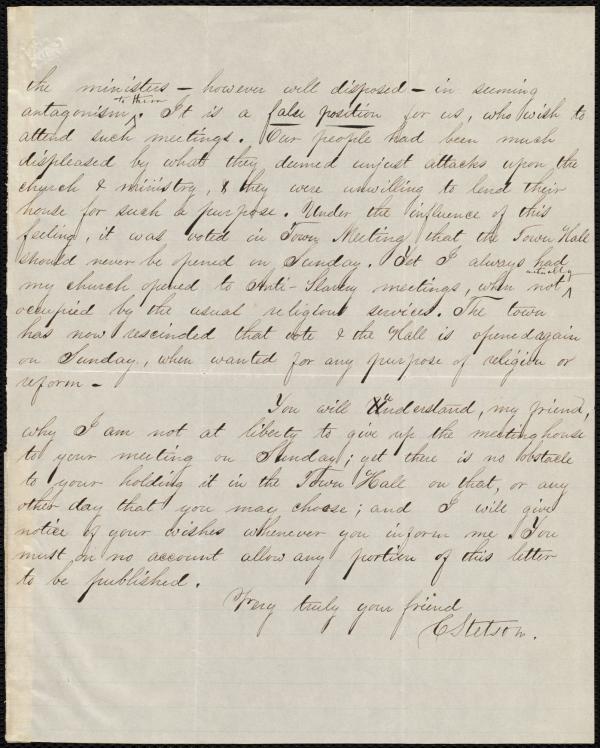 the ministers – however will disposed – in seeming
antagonism ^to them. It is a false position for us, who wish to
attend such meetings. Our people had been much
displeased by what they deemed unjust attacks upon the
church & ministry, & they were unwilling to lend their
house for such a purpose. Under the influence of this
feeling, it was voted in Town Meeting that the Town Hall
should never be opened on Sunday. Yet I always had
my church opened to Anti-Slavery meetings, when not ^actually
occupied by the usual religious services. The town
has now rescinded that vote & the Hall is opened again
on Sunday, when wanted for any purpose of religion or
reform –
You will understand, my friend,
why I am not at liberty to give up the meetinghouse
to your meeting on Sunday; yet there is no obstacle
to your holding it in the Town Hall on that, or any
other day that you may choose; and I will give
notice of your wishes whenever you inform me. You
must on no account allow any portion of this letter
to be published.
Very truly your friend
C Stetson.